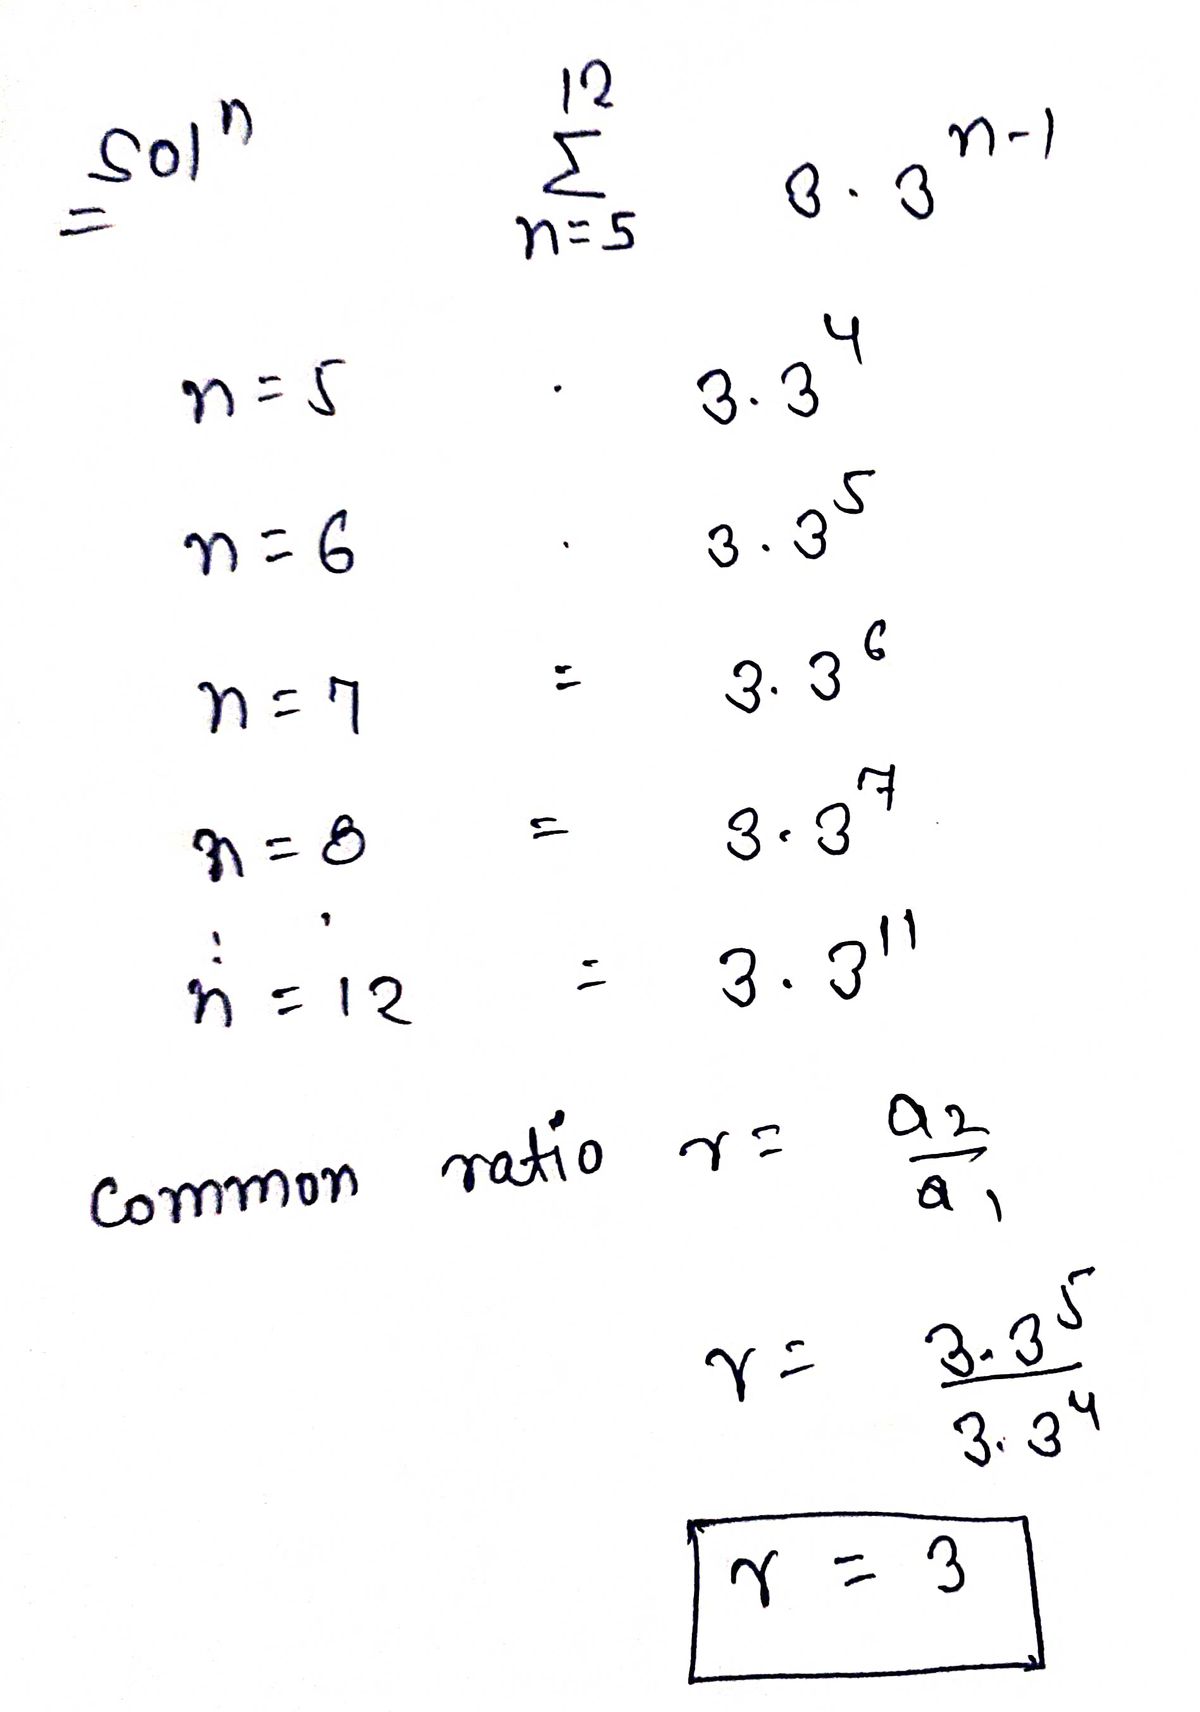 Solⁿ 12 Σ n=5 3·3^(n-1)
n=5 · 3·3⁴
n=6 · 3·3⁵
n=7 = 3·3⁶
n=8 = 3·3⁷
⋮
n=12 = 3·3¹¹
Common ratio r= a₂/a₁
r= 3·3⁵/3·3⁴
r = 3